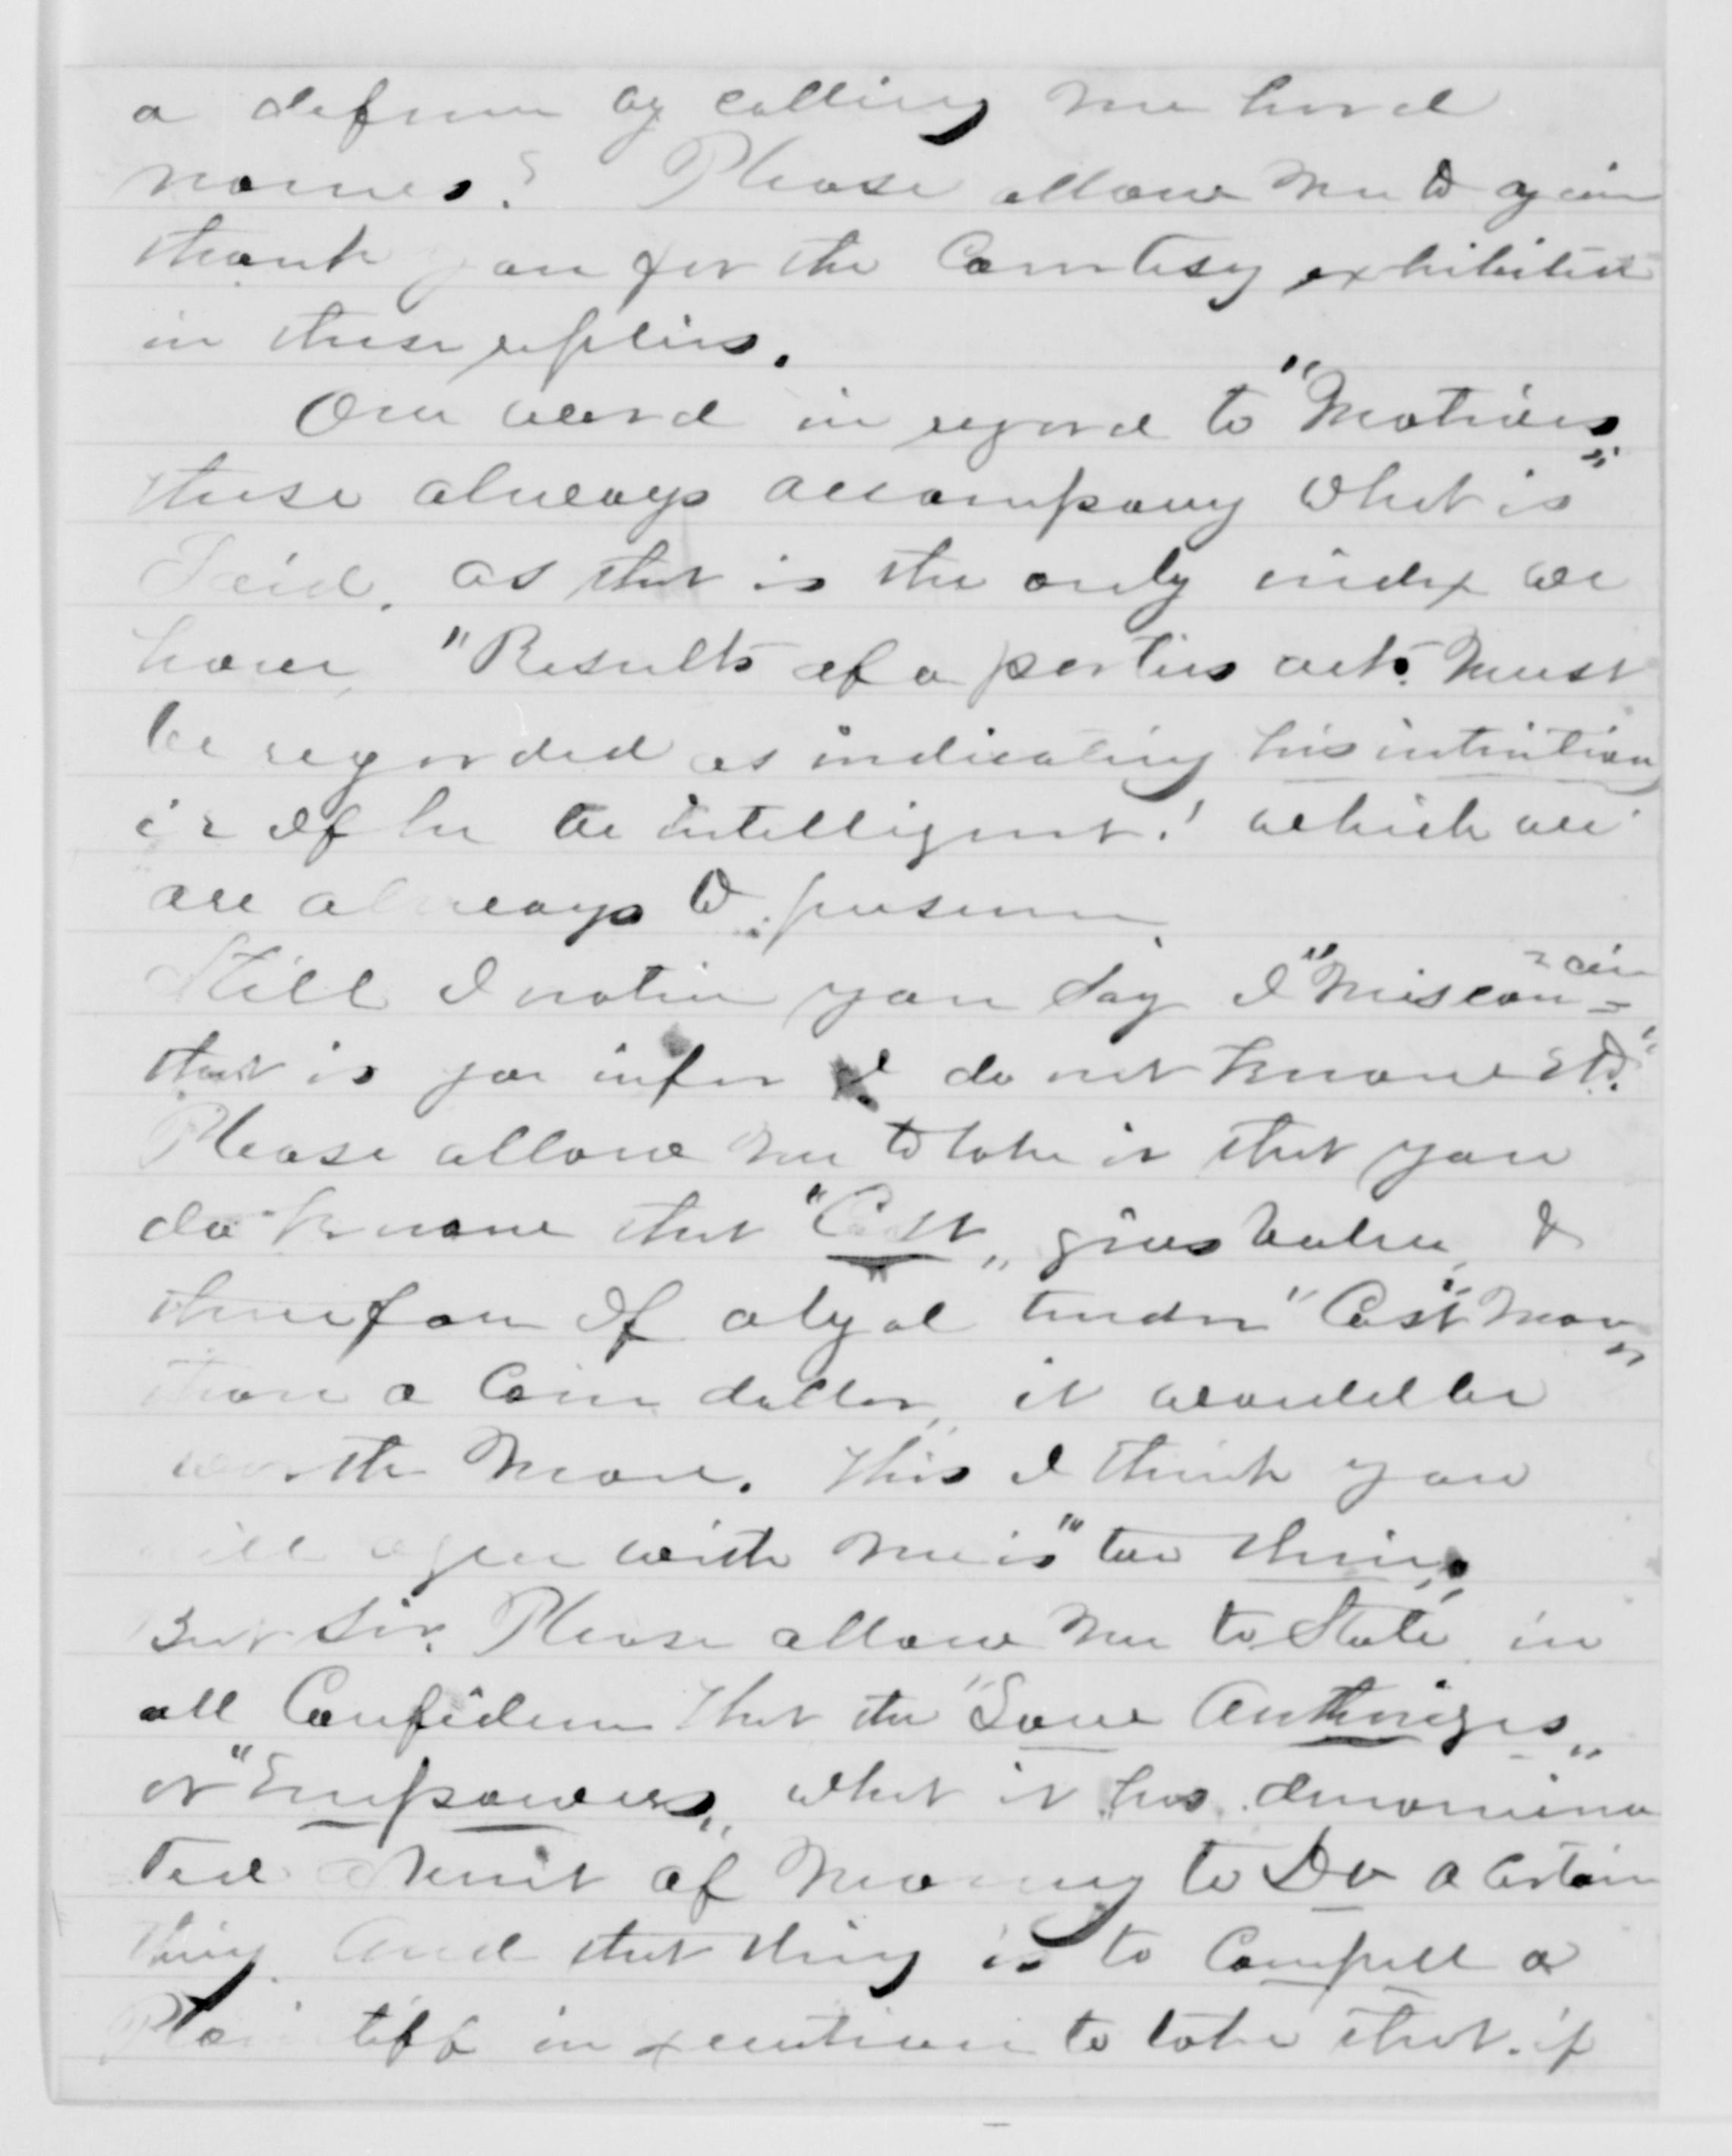 a defense by calling me hard
names? Please allow me to again
thank you for the Courtesy exhibited
in these replies.
One word in regard to "Motives"
these always accompany what is
Said, as that is the only index we
have, "Results of a parties acts must
be regarded as indicating his intention
if he be intelligent! which we
are always to presume
Still I notice you say I "Miscon-
that is you infer I do not know
Please allow me to take it that you
do know that "Cost" gives value, &
therefore If a legal tender "Cost" More"
than a Coin dollar, it would be
worth More. This I think you
will agree with me is "too thin"
But Sir. Please allow me to State in
all Confidence that the "Law Authorizes"
or "Empowers" what it has denomina
ted a Unit of Money to Do a Certain
thing. And that thing is to Compell a
Plaintiff in execution to take that. if